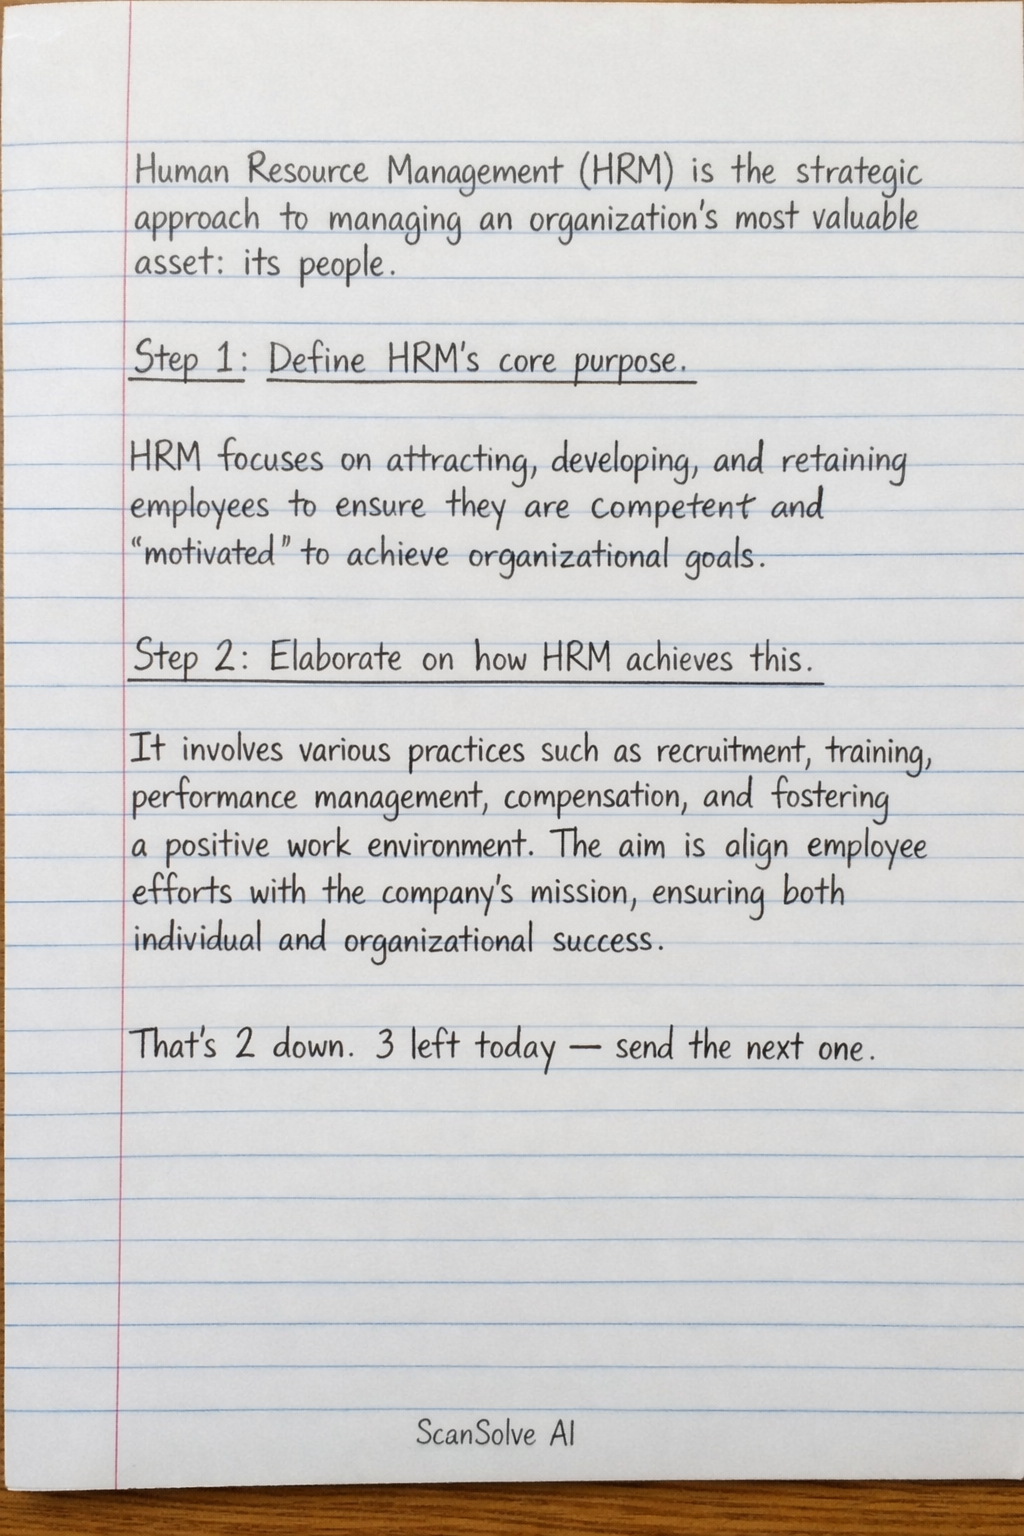 Human Resource Management (HRM) is the strategic
approach to managing an organization's most valuable
asset: its people.
Step 1: Define HRM's core purpose.
HRM focuses on attracting, developing, and retaining
employees to ensure they are competent and
“motivated” to achieve organizational goals.
Step 2: Elaborate on how HRM achieves this.
It involves various practices such as recruitment, training,
performance management, compensation, and fostering
a positive work environment. The aim is align employee
efforts with the company's mission, ensuring both
individual and organizational success.
That's 2 down. 3 left today — send the next one.
ScanSolve AI